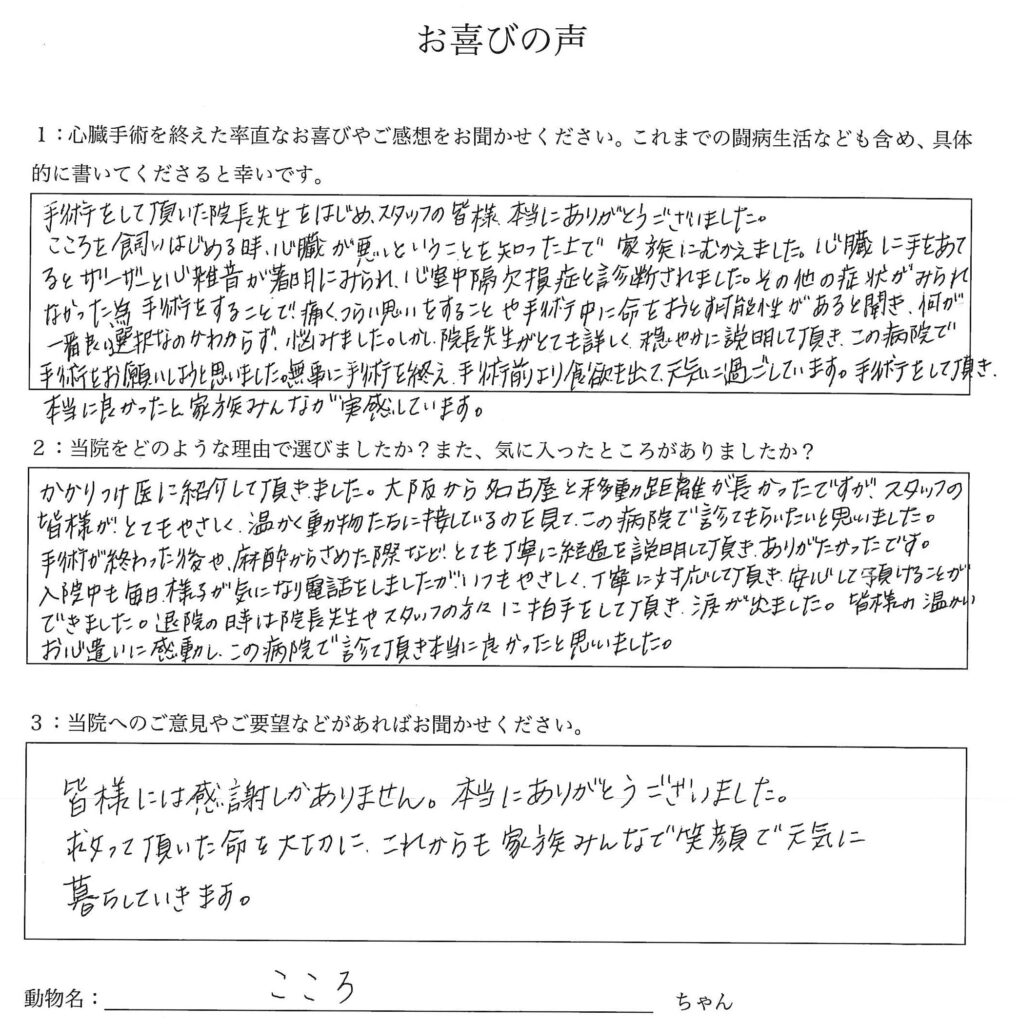 お喜びの声
1：心臓手術を終えた率直なお喜びやご感想をお聞かせください。これまでの闘病生活なども含め、具体
的に書いてくださると幸いです。
手術をして頂いた院長先生をはじめ、スタッフの皆様、本当にありがとうございました。
こころを飼いはじめる時、心臓が悪いということを知った上で家族にむかえました。心臓に手をあて
るとザーザーと心雑音が著明にみられ、心室中隔欠損症と診断されました。その他の症状がみられ
なかった為、手術をすることで痛く、つらい思いをすることや手術中に命をおとす可能性があると聞き、何が
一番良い選択なのかわからず、悩みました。しかし、院長先生がとても詳しく、穏やかに説明して頂き、この病院で
手術をお願いしようと思いました。無事に手術を終え、手術前より食欲も出て、元気に過ごしています。手術をして頂き、
本当に良かったと家族みんなが実感しています。
2：当院をどのような理由で選びましたか？また、気に入ったところがありましたか？
かかりつけ医に紹介して頂きました。大阪から名古屋と移動距離が長かったですが、スタッフの
皆様がとてもやさしく、温かく動物たちに接しているのを見て、この病院で診てもらいたいと思いました。
手術が終わった後や、麻酔からさめた際など、とても丁寧に経過を説明して頂き、ありがたかったです。
入院中も毎日、様子が気になり電話をしましたが、いつもやさしく、丁寧に対応して頂き、安心して預けることが
できました。退院の時は院長先生やスタッフの方々に拍手をして頂き、涙が出ました。皆様の温かい
お心遣いに感動し、この病院で診て頂き本当に良かったと思いました。
3：当院へのご意見やご要望などがあればお聞かせください。
皆様には感謝しかありません。本当にありがとうございました。
救って頂いた命を大切に、これからも家族みんなで笑顔で元気に
暮らしていきます。
動物名：こころ ちゃん